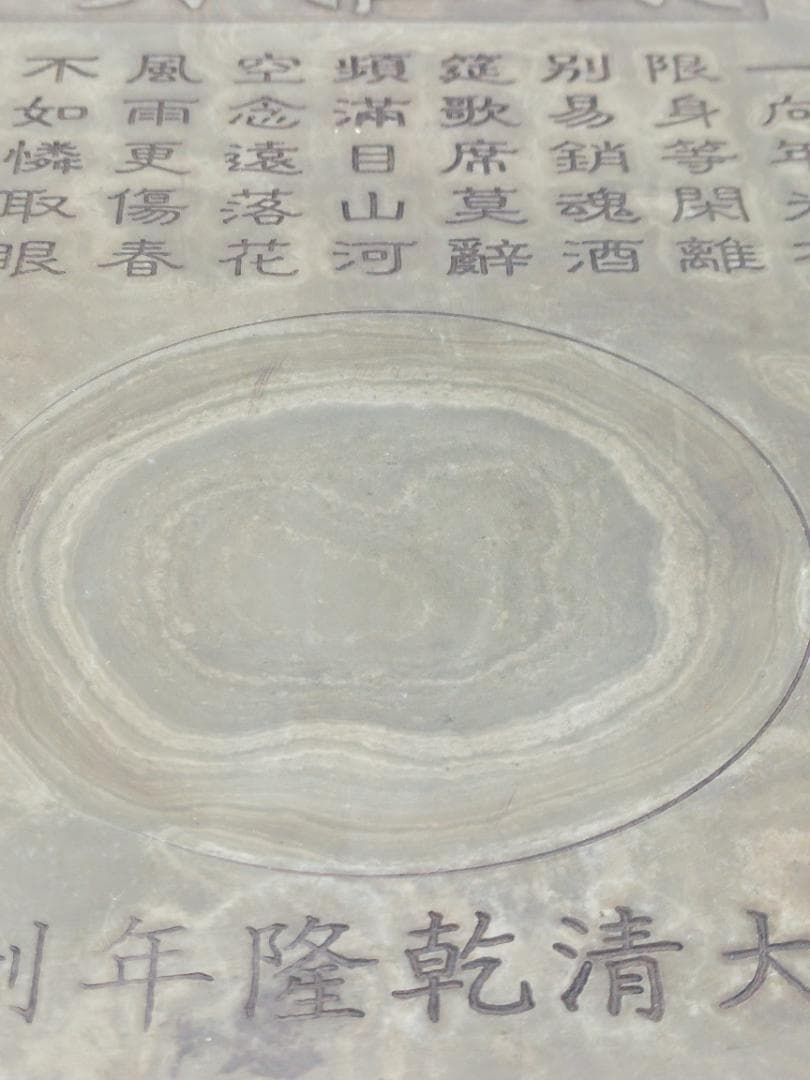 一向年光
限身等閑離
別易銷魂酒
筵歌席莫辭
頻滿目山河
空念遠落花
風雨更傷春
不如憐取眼
大清乾隆年制